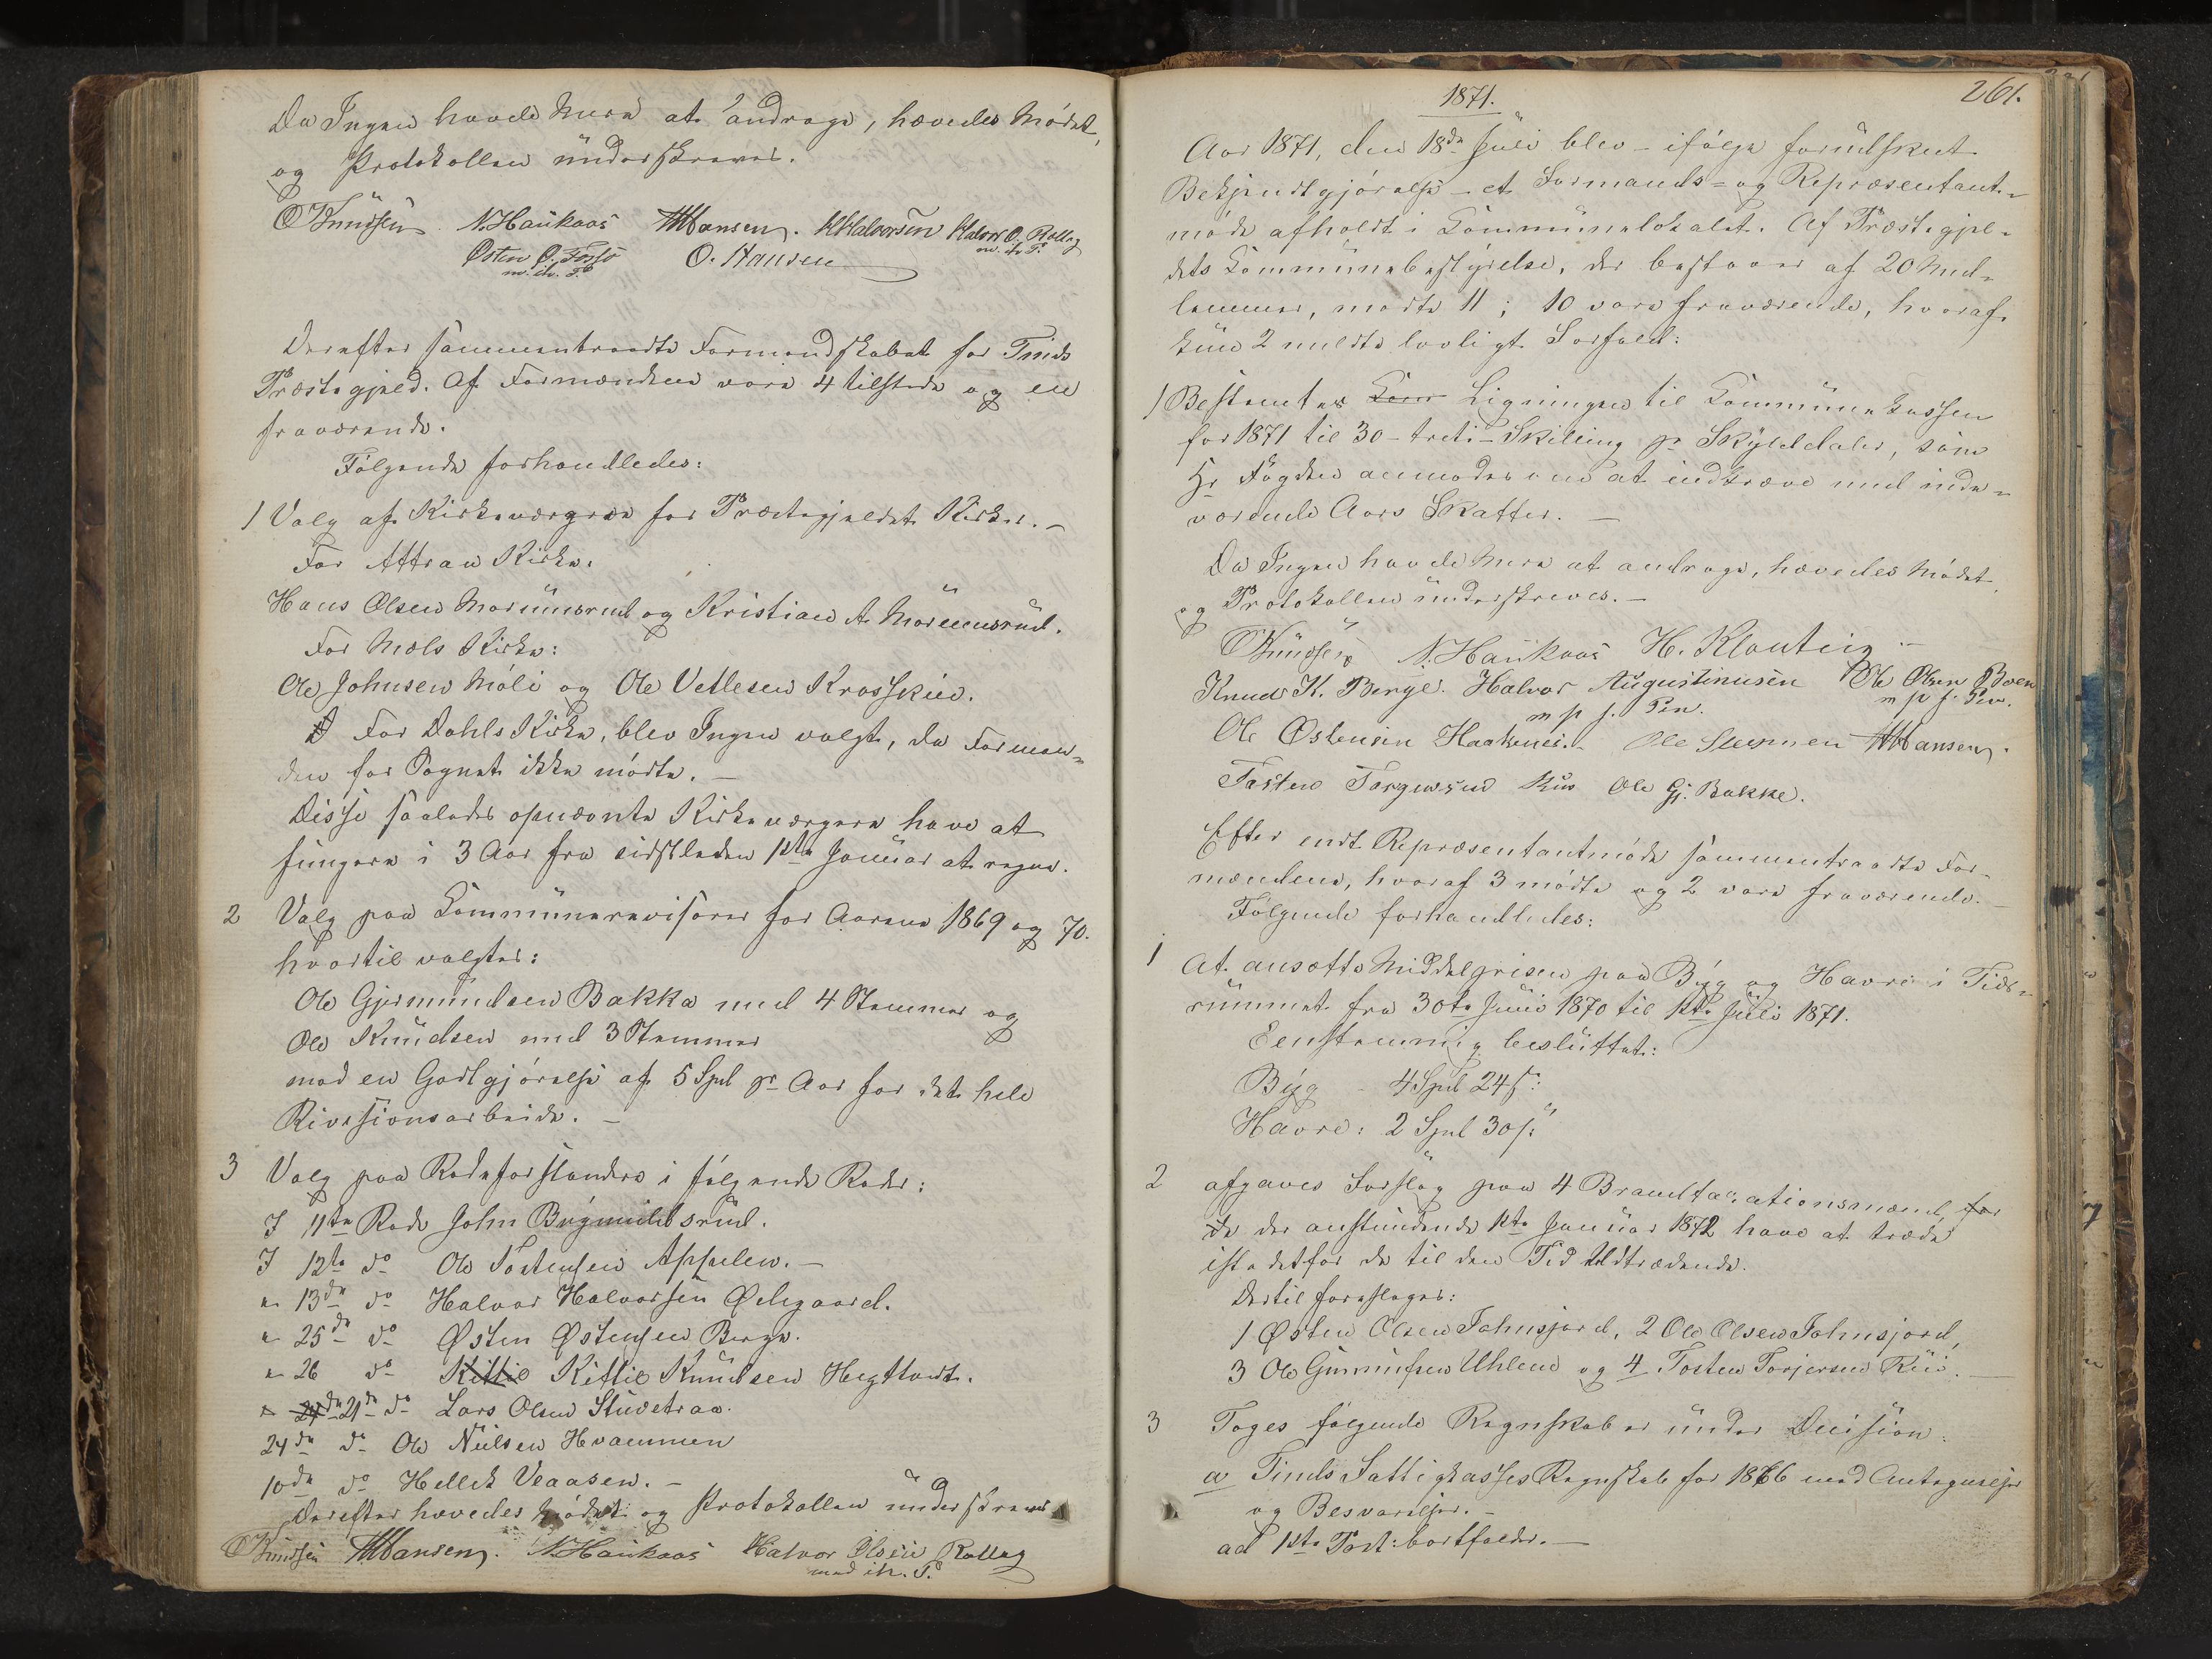 Da Ingen havde mere at andrage, hævedes Mødet,
og Protokollen underskreves.
OKnudsen N. Haukaas HHansen. HHalvorsen Halvor O. Rollag
m. ih. P.
Østen O. Fosso O. Hansen
m. ih. P.
Derefter sammentraadte Formandskabet for Tinds
Præstegjeld. Af Formændene vare 4 tilstede og en
fraværende.
Følgende forhandledes:
1 Valg af Kirkeværgere for Præstegjeldets Kirker. –
For Attraa Kirke.
Hans Olsen Marumsrud og Kristian A. Marumsrud.
For Mæls Kirke:
Ole Johnsen Møli og Ole Vetlesen Krosskui.
For Dahls Kirke, blev Ingen valgt, da Forman-
den for Sognet ikke mødte. –
Disse saaledes opnævnte Kirkeværgere have at
fungere i 3 Aar fra sidstleden 1ste Januar at regne.
2 Valg paa Kommunerevisorer for Aarene 1869 og 70.
hvortil valgtes:
Ole Gjermundsen Bakka med 4 Stemmer og
Ole Knudsen med 3 Stemmer
mod en Godtgjørelse af 5 Spd pr Aar for det hele
Rivisionsarbeide. –
3 Valg paa Rodeforstandere i følgende Roder:
I 11te Rode John Bøgmildsrud.
I 12te do Ole Tostensen Appelen. –
" 13de do Halvor Halvorsen Ødegaard.
" 25de do Østen Østensen Berge.
" 26 do Kittil Kittil Knudsen Hegtvedt.
" 24de 21de do Lars Olsen Skuvetraa.
24de do Ole Nielsen Hvammen
10de do Hellek Veaasen. –
Derefter hævedes Mødet og Protokollen underskreves
OKnudsen HHansen. N. Haukaas Halvor Olsen Rollag
med ih. P.
1871. 261.
Aar 1871, den 18de Juli blev – ifølge forudskeet
Bekjendtgjørelse – et Formands- og Repræsentant-
møde afholdt i Kommunelokalet. Af Præstegjel-
dets Kommunebestyrelse, der bestaaer af 20 Med-
lemmer, mødte 11; 10 vare fraværende, hvoraf
kun 2 meldte lovligt Forfald:
1 Bestemtes Kom Ligningen til Kommunekassen
for 1871 til 30 – treti – Skilling pr Skylddaler, som
Hr Fogden anmodes om at indkræve med inde-
værende Aars Skatter. –
Da Ingen havde mere at andrage, hævedes Mødet
og Protokollen underskreves. –
OKnudsen N. Haukaas H. Klouteig –
Knud K. Berge. Halvor Augustinusen Ole Olsen Boen
m p f. Pen. m p f. Pen.
Ole Østensen Haakenes. – HHansen.
Tosten Torgersen Rue Ole Gj. Bakke.
Efter endt Repræsentantmøde sammentraadte For-
mændene, hvoraf 3 mødte og 2 vare fraværende. –
Følgende forhandledes:
1 At ansætte Middelprisen paa Byg og Havre i Tids-
rummet fra 30te Juni 1870 til 1ste Juli 1871.
Eenstemmig besluttet:
Byg – 4 Spd 24 s:
Havre: 2 Spd 30 s:
2 afgaves Forslag paa 4 Brandtaxationsmænd, for
de der anstundende 1ste Januar 1872 have at træde
istedetfor de til den Tid Udtrædende.
Dertil foresloges:
1 Østen Olsen Jahnsjord, 2 Ole Olsen Jahnsjord,
3 Ole Gunnufsen Uhlen og 4 Tosten Torjersen Rui. –
3 Toges følgende Regnskaber under Decision:
a Tinds Fattigkasses Regnskab for 1866 med Antegnelser
og Besvarelser. –
ad 1ste Post: bortfalder. –